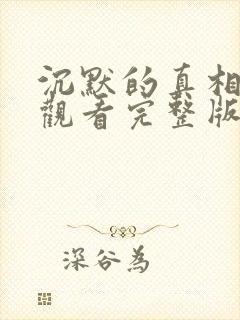 沉默的真相
觀看完整版
深谷為